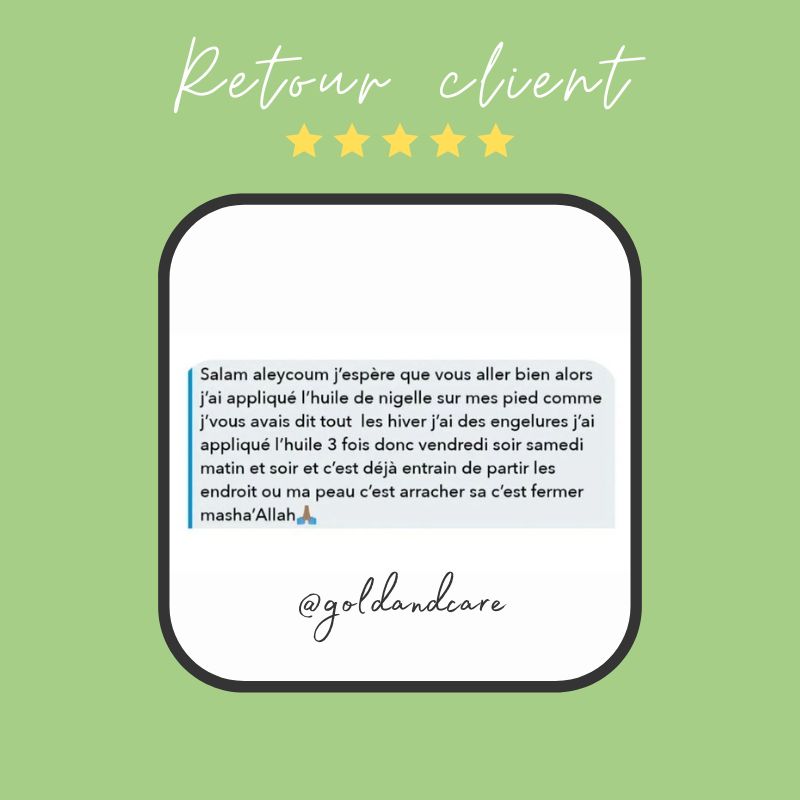 Retour client
Salam aleycoum j’espère que vous aller bien alors
j’ai appliqué l’huile de nigelle sur mes pied comme
j’vous avais dit tout les hiver j’ai des engelures j’ai
appliqué l’huile 3 fois donc vendredi soir samedi
matin et soir et c’est déjà entrain de partir les
endroit ou ma peau c’est arracher sa c’est fermer
masha’Allah🙏🏾
@goldandcare